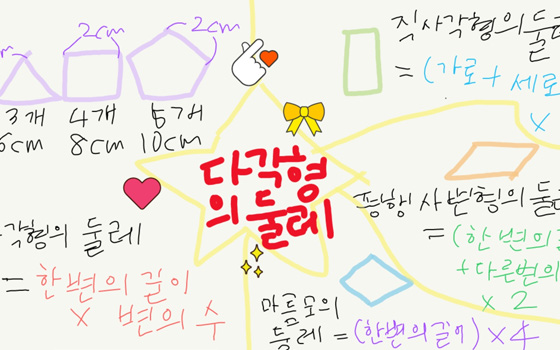 2cm
2cm
3개 4개 5개
6cm 8cm 10cm
직사각형의 둘레
= (가로 + 세로
×
다각형
의 둘레
각형의 둘레
= 한 변의 길이
× 변의 수
평행사변형의 둘레
= (한 변의 길
+ 다른변의
× 2
마름모의
둘레 = (한변의 길이) × 4